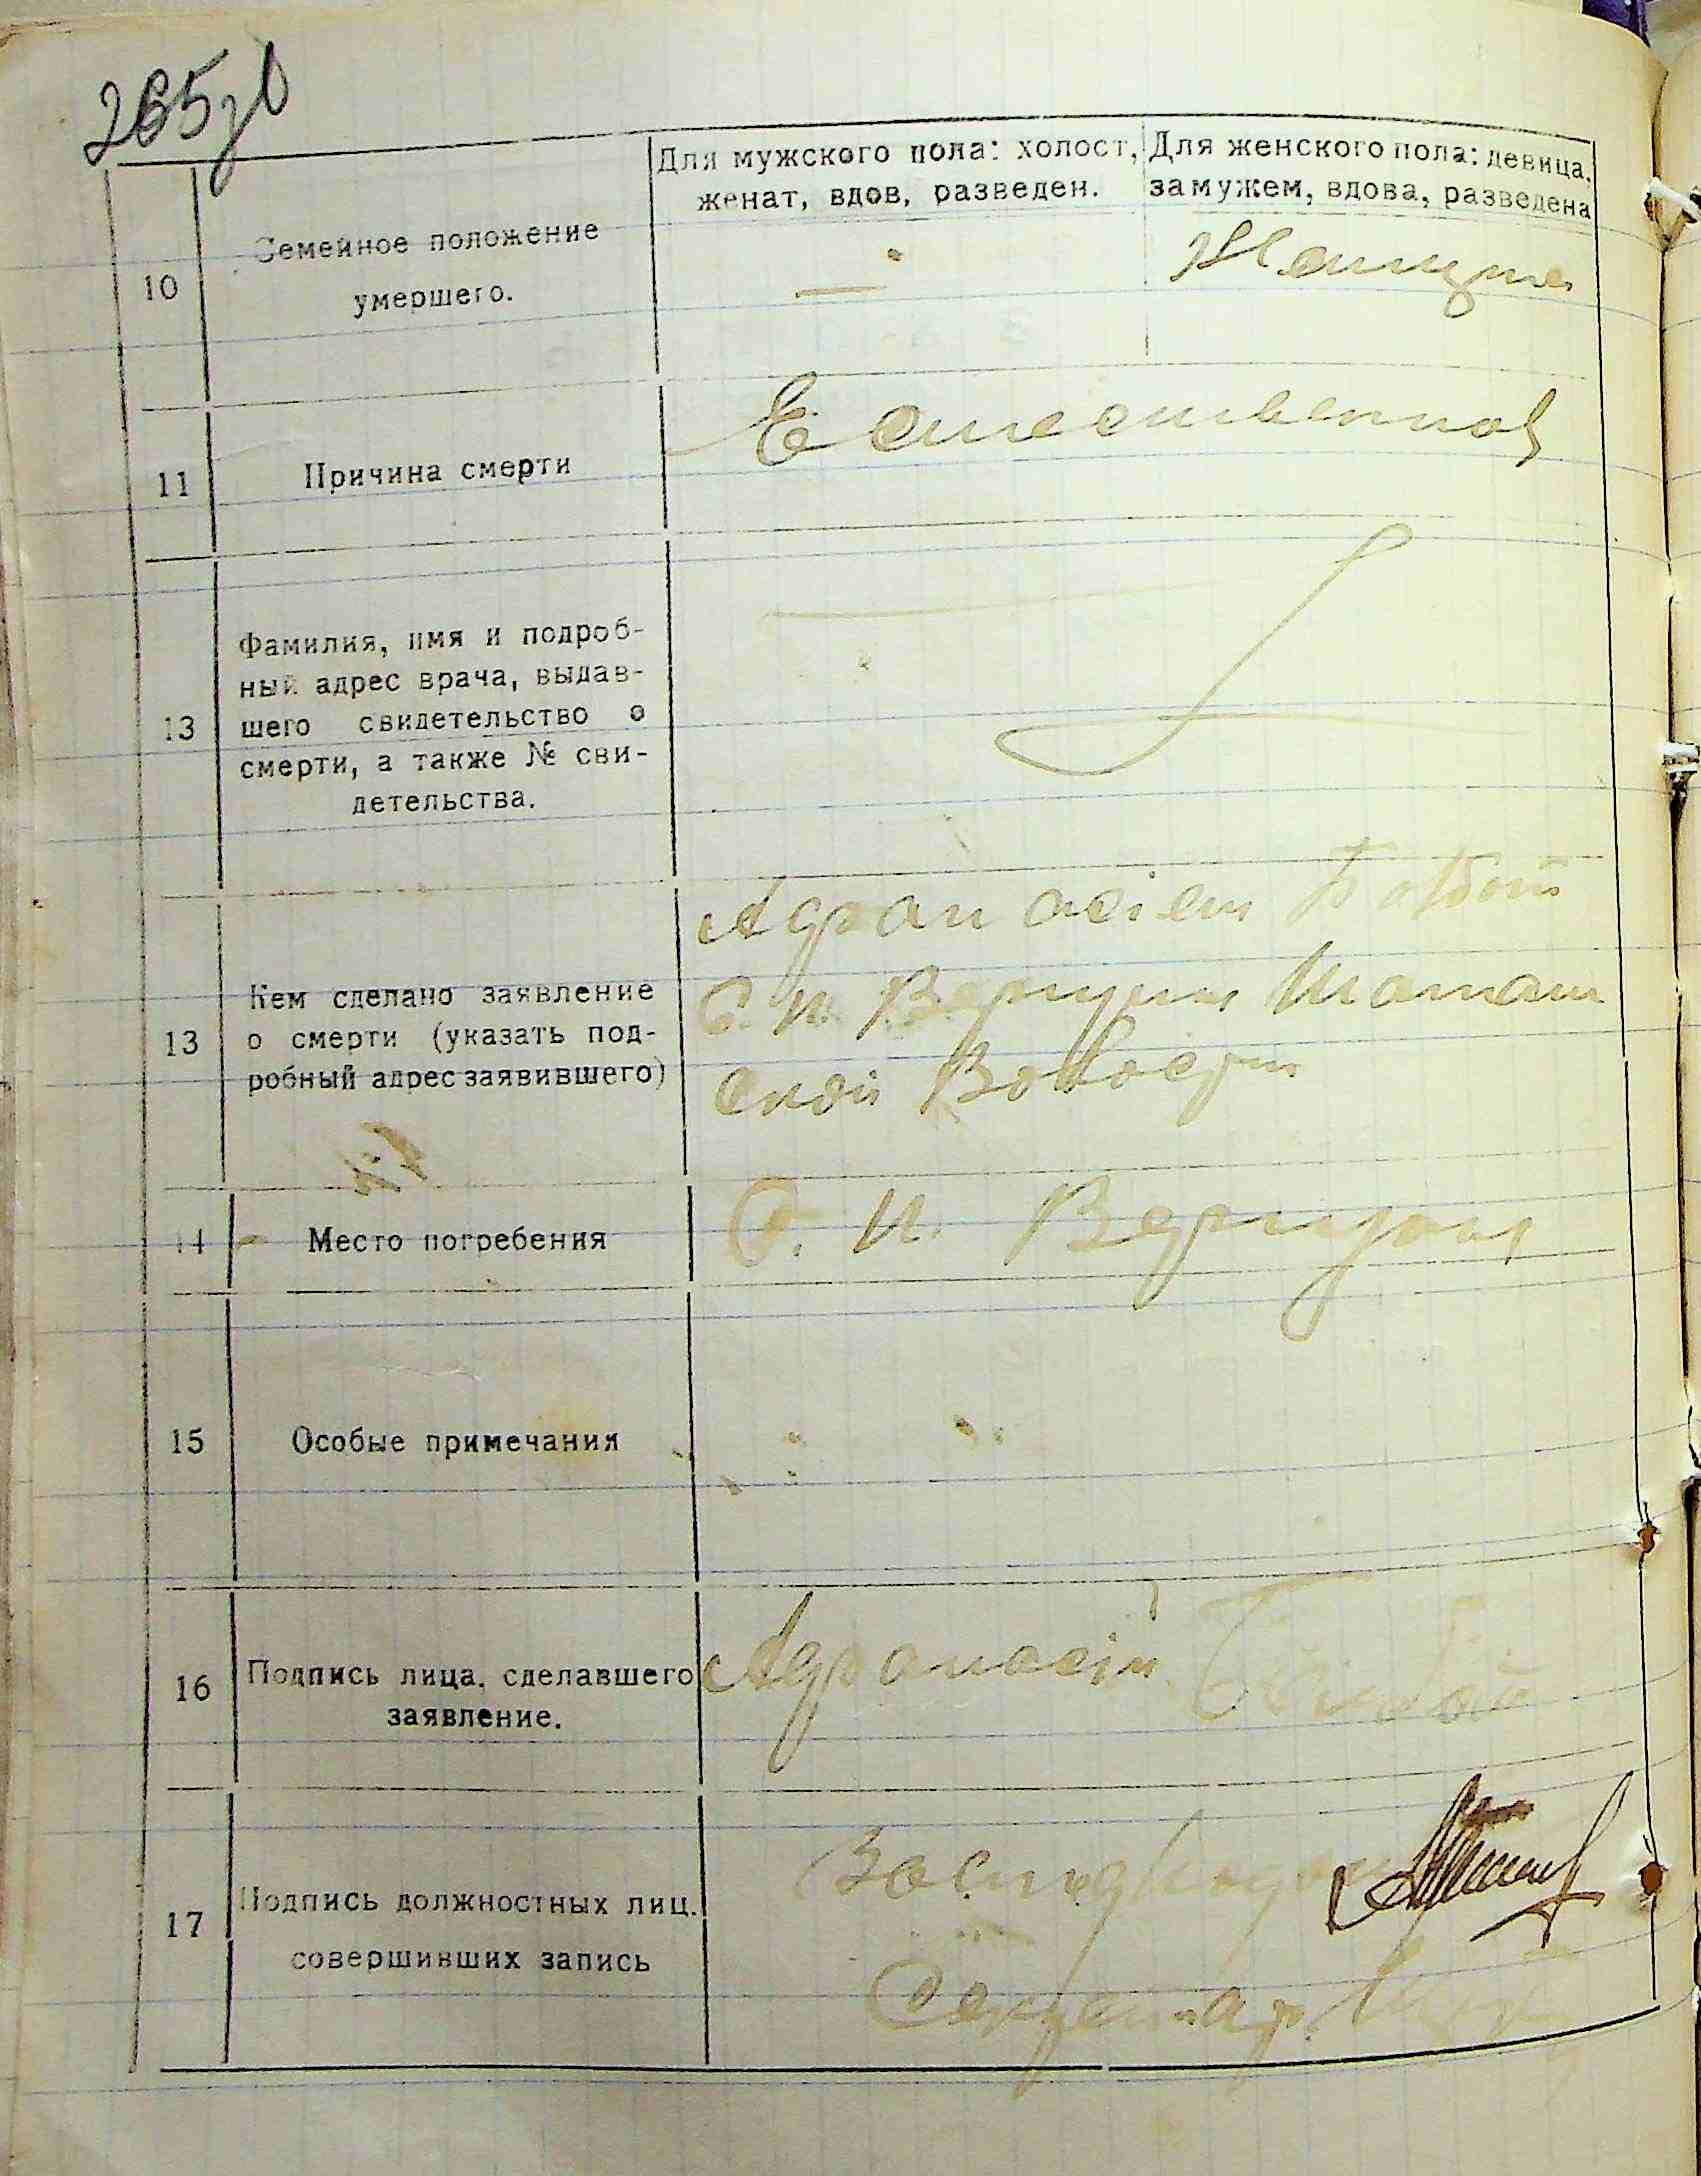 265
Для мужского пола: холост, женат, вдов, разведен.
Для женского пола: девица, замужем, вдова, разведена
10
Семейное положение
умершего.
—
11
Причина смерти
Естественной
13
Фамилия, имя и подроб-
ный адрес врача, выдав-
шего свидетельство о
смерти, а также № сви-
детельства.
13
Кем сделано заявление
о смерти (указать под-
робный адрес заявившего)
Афанасием
ской Волости
14
Место погребения
15
Особые примечания
16
Подпись лица, сделавшего
заявление.
Афанасий
17
Подпись должностных лиц.
совершивших запись
Секретар